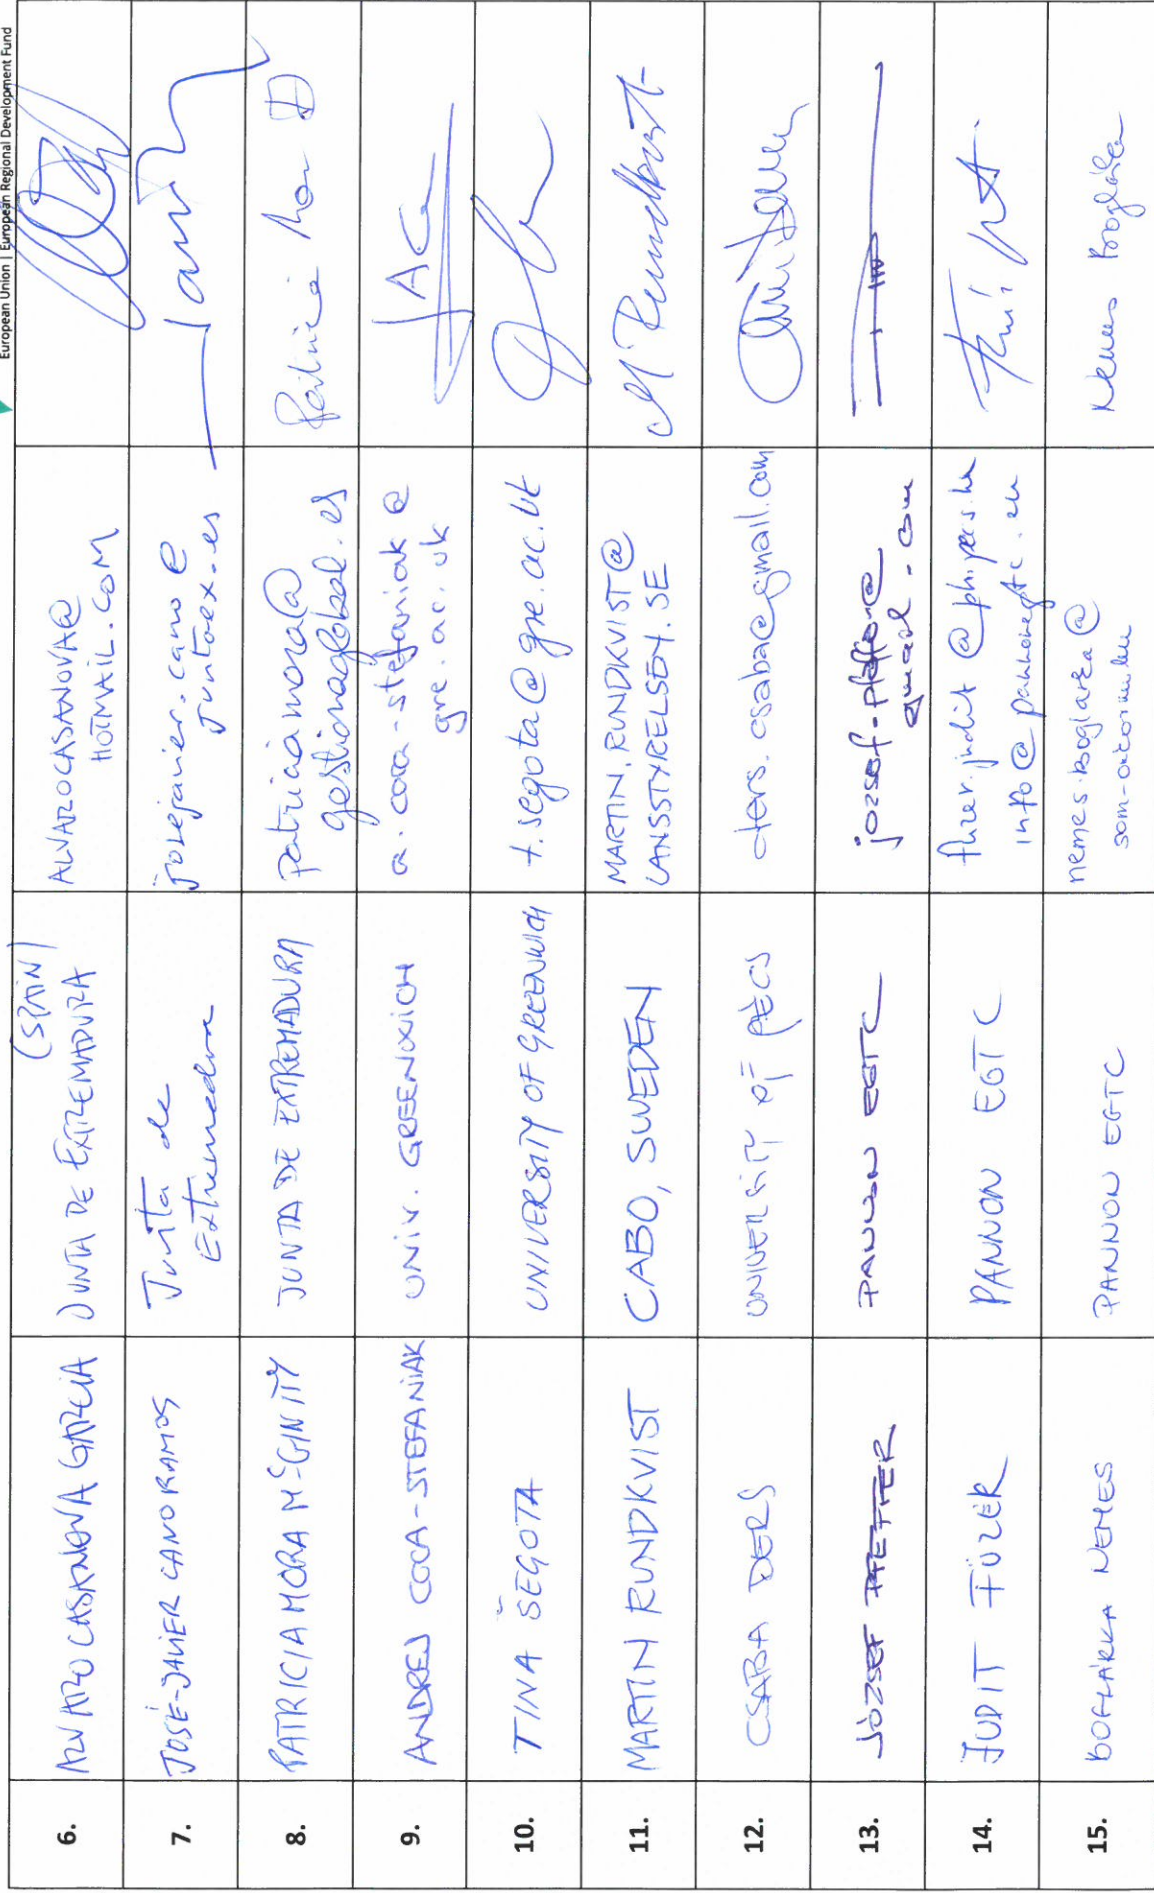 European Union | European Regional Development Fund
6.
ALVARO CASANOVA GARCIA
JUNTA DE EXTREMADURA
(SPAIN)
ALVAROCASANOVA@
HOTMAIL.COM
7.
JOSÉ-JAVIER CANO RAMOS
Junta de
Extremadura
josejavier.cano@
juntaex.es
8.
PATRICIA MORA McGINITY
JUNTA DE EXTREMADURA
patriciamora@
gestionaglobal.es
Patricia Mora
9.
ANDREJ COCA-STEFANIAK
UNIV. GREENWICH
a.coca-stefaniak@
gre.ac.uk
JAC
10.
TINA ŠEGOTA
UNIVERSITY OF GREENWICH
t.segota@gre.ac.uk
11.
MARTIN RUNDKVIST
CABO, SWEDEN
MARTIN.RUNDKVIST@
LANSSTYRELSEN.SE
M Rundkvist
12.
CSABA DERS
UNIVERSITY OF PÉCS
ders.csaba@gmail.com
13.
JÓZSEF PFEFFER
PANNON EGTC
jozsef.pfeffer@
gmail.com
14.
JUDIT FÜZÉR
PANNON EGTC
fuzer.judit@ph.pecs.hu
info@pannonegtc.eu
15.
BOGLÁRKA NEMES
PANNON EGTC
nemes.boglarka@
Nemes Boglárka